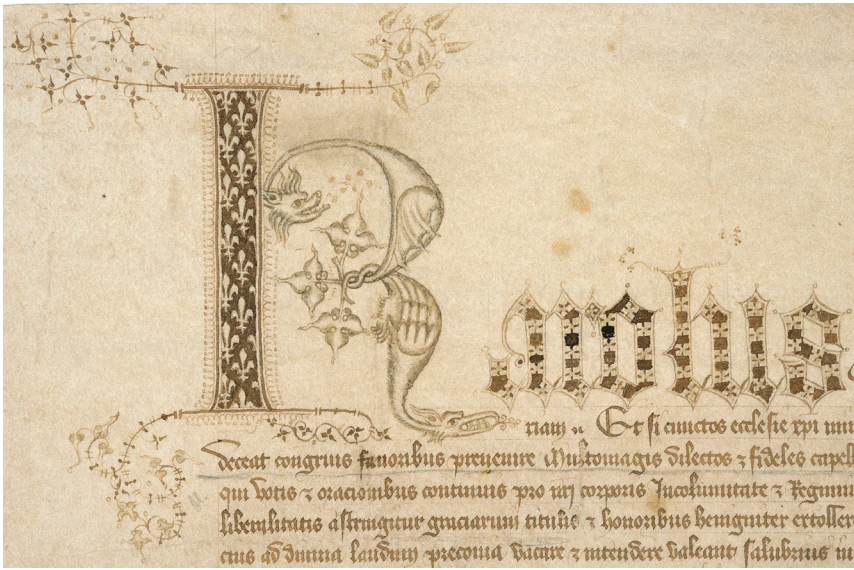 Karolus
riam .. Et si cunctos ecclesie xpi
deceat congruis fauoribus preuenire Multomagis dilectos ⁊ fideles capell
qui votis ⁊ oracionibus continuis pro nri corporis Incolumitate ⁊ Regimi
liberalitatis astringitur graciarum titulis ⁊ honoribus benigniter extoller
cius ad diuina laudum preconia vacare ⁊ intendere valeant salubrius